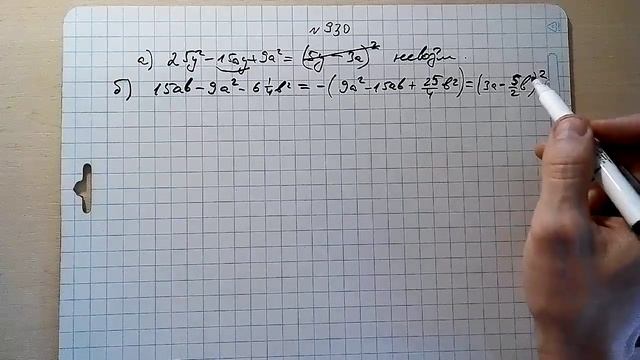 № 930
а) 25y² − 15ay + 9a² = (5y − 3a)² невозм.
б) 15ab − 9a² − 6 1/4 b² = −(9a² − 15ab + 25/4 b²) = (3a − 5/2 b)²